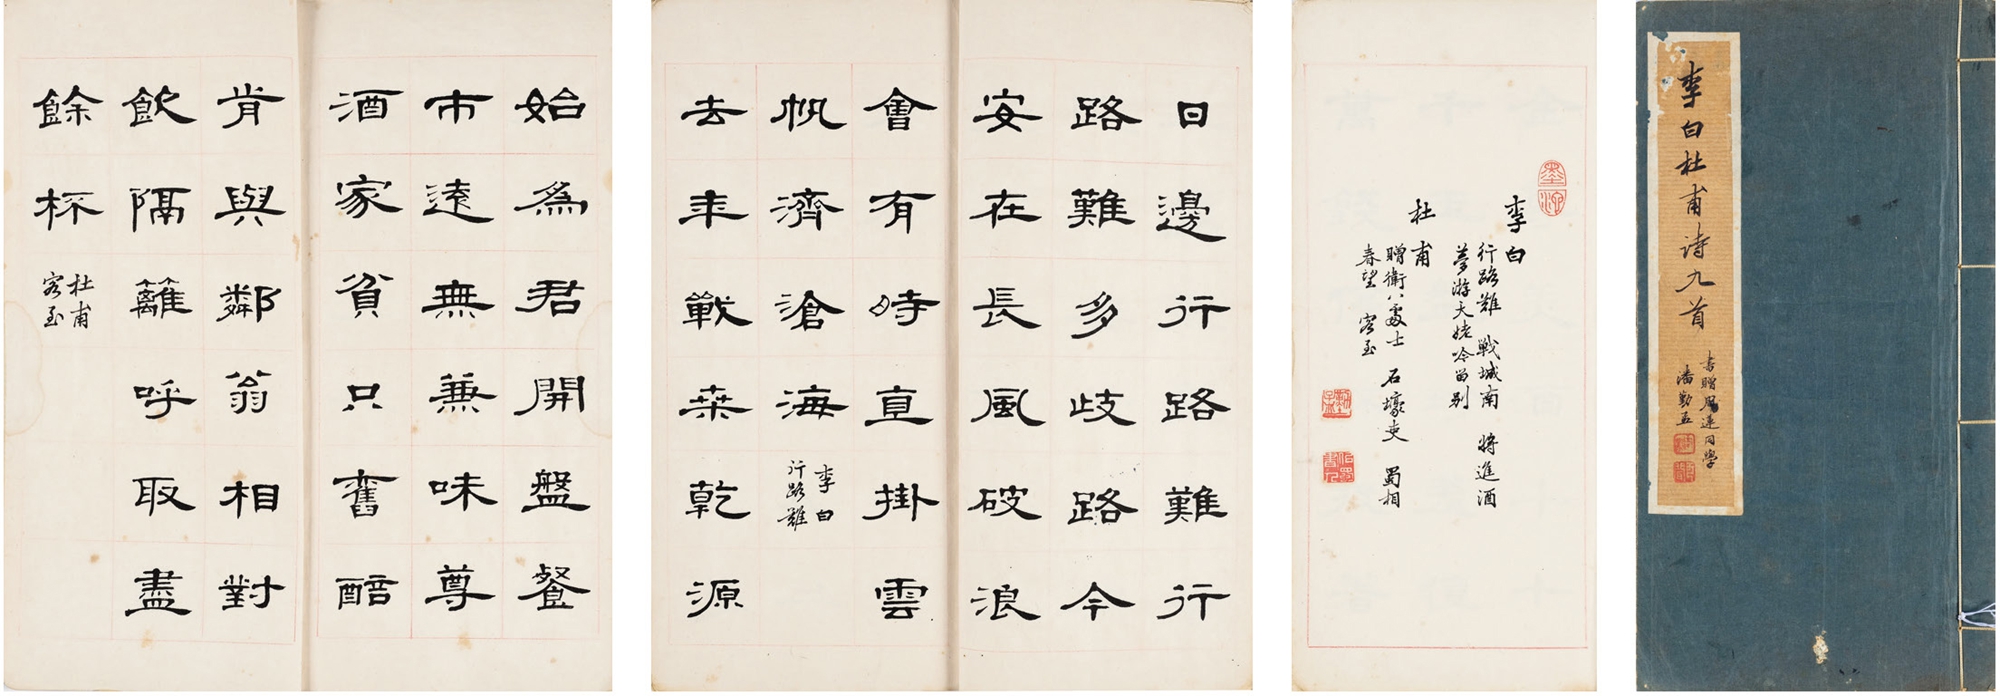 李白杜甫诗九首
书赠同学
潘勤孟
李白
行路難 戰城南 將進酒
夢游天姥吟留别
杜甫
贈衛八處士 石壕吏 蜀相
春望 客至
日邊行路難行
路難多歧路今
安在長風破浪
會有時直掛雲
帆濟滄海
李白
行路難
去年戰桑乾源
始為君開盤餐
市遠無兼味尊
酒家貧只舊醅
肯與鄰翁相對
飲隔籬呼取盡
餘杯
杜甫
客至